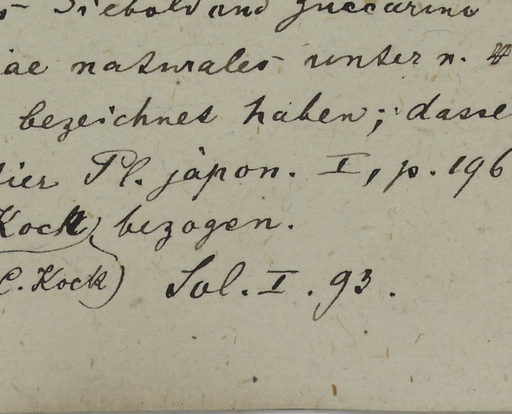 Siebold und Zuccarini
iae naturales unter n.
bezeichnet haben; dasse
ier Pl. japon. I, p. 196
Kock, bezogen.
C. Kock) Sol. I. 93.